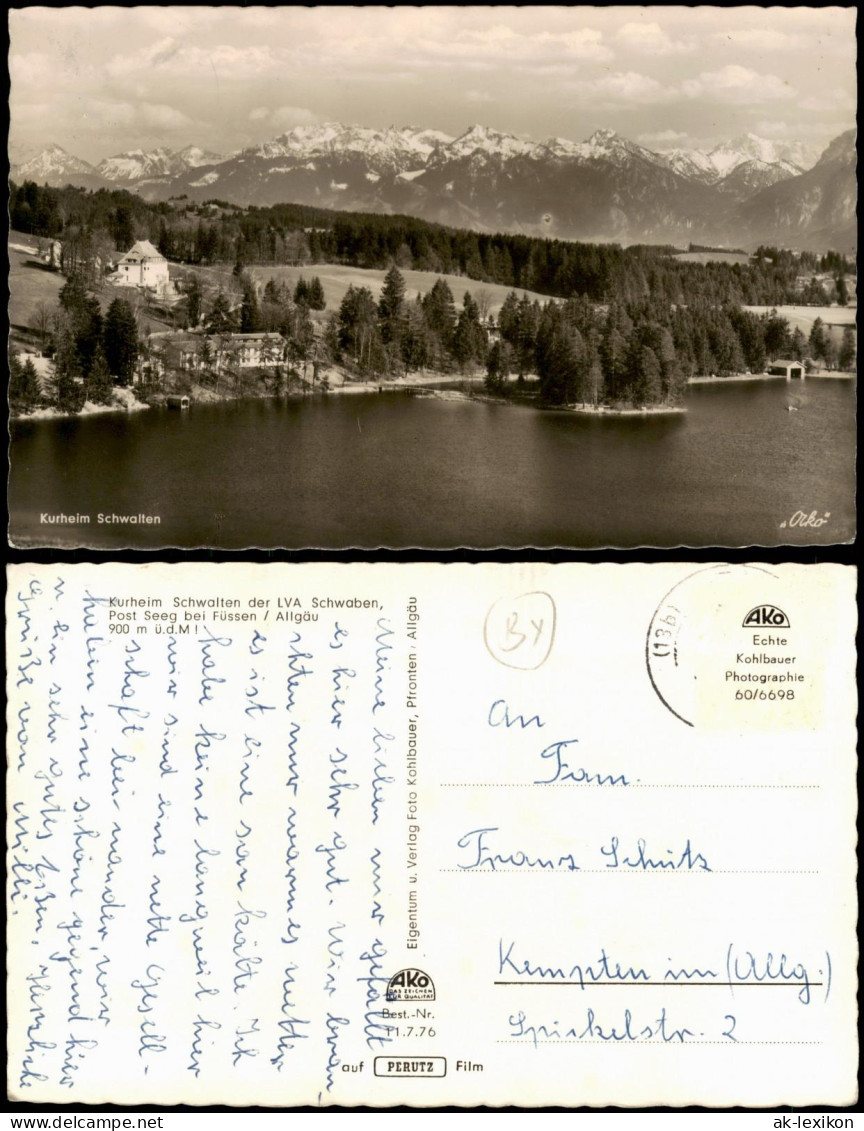 Kurheim Schwalten
„Orkó"
Kurheim Schwalten der LVA Schwaben,
Post Seeg bei Füssen / Allgäu
900 m ü.d.M!
Meine lieben mir gefällt
es hier sehr gut. Wir brau-
chten nur warmes wetter
es ist eine sau kälte. Ich
habe keine langweil hier
wir sind eine nette Gesell-
schaft bei nander, wir
haben eine schöne gegend hier
u. ein sehr gutes Essen. Herzliche
Grüße von Milli.
Eigentum u. Verlag Foto Kohlbauer, Pfronten / Allgäu
AKO
DAS ZEICHEN
FÜR QUALITÄT
Best.-Nr.
11.7.76
auf PERUTZ Film
BY
(13b)
AKO
Echte
Kohlbauer
Photographie
60/6698
An
Fam.
Franz Schütz
Kempten im (Allg.)
Spickelstr. 2
delcampe.net
ak-lexikon